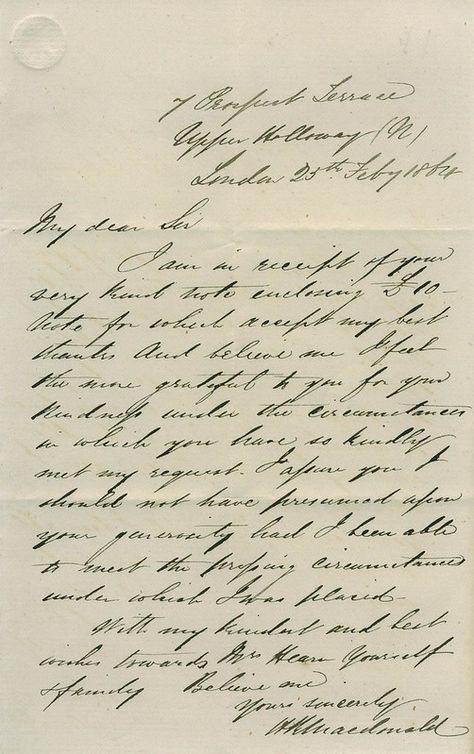 7 Prospect Terrace
Upper Holloway (N)
London 25th Feby 1864
My dear Sir
I am in receipt of your
very kind note enclosing £10-
Note for which accept my best
thanks And believe me I feel
the more grateful to you for your
kindness under the circumstances
in which you have so kindly
met my request. I assure you I
should not have presumed upon
your generosity had I been able
to meet the pressing circumstances
under which I was placed-
With my kindest and best
wishes towards Mrs Hearn Yourself
& family Believe me
Yours sincerely
Macdonald